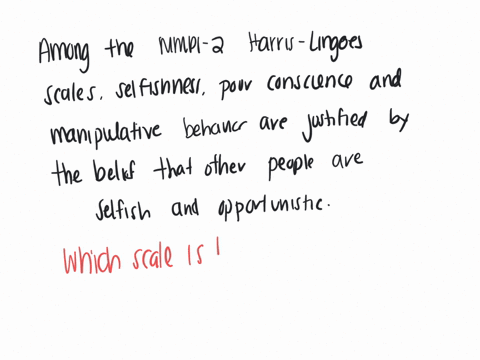 Among the MMPI-2 Harris-Lingoes
scales, selfishness, poor conscience and
manipulative behavior are justified by
the belief that other people are
selfish and opportunistic.
Which scale is